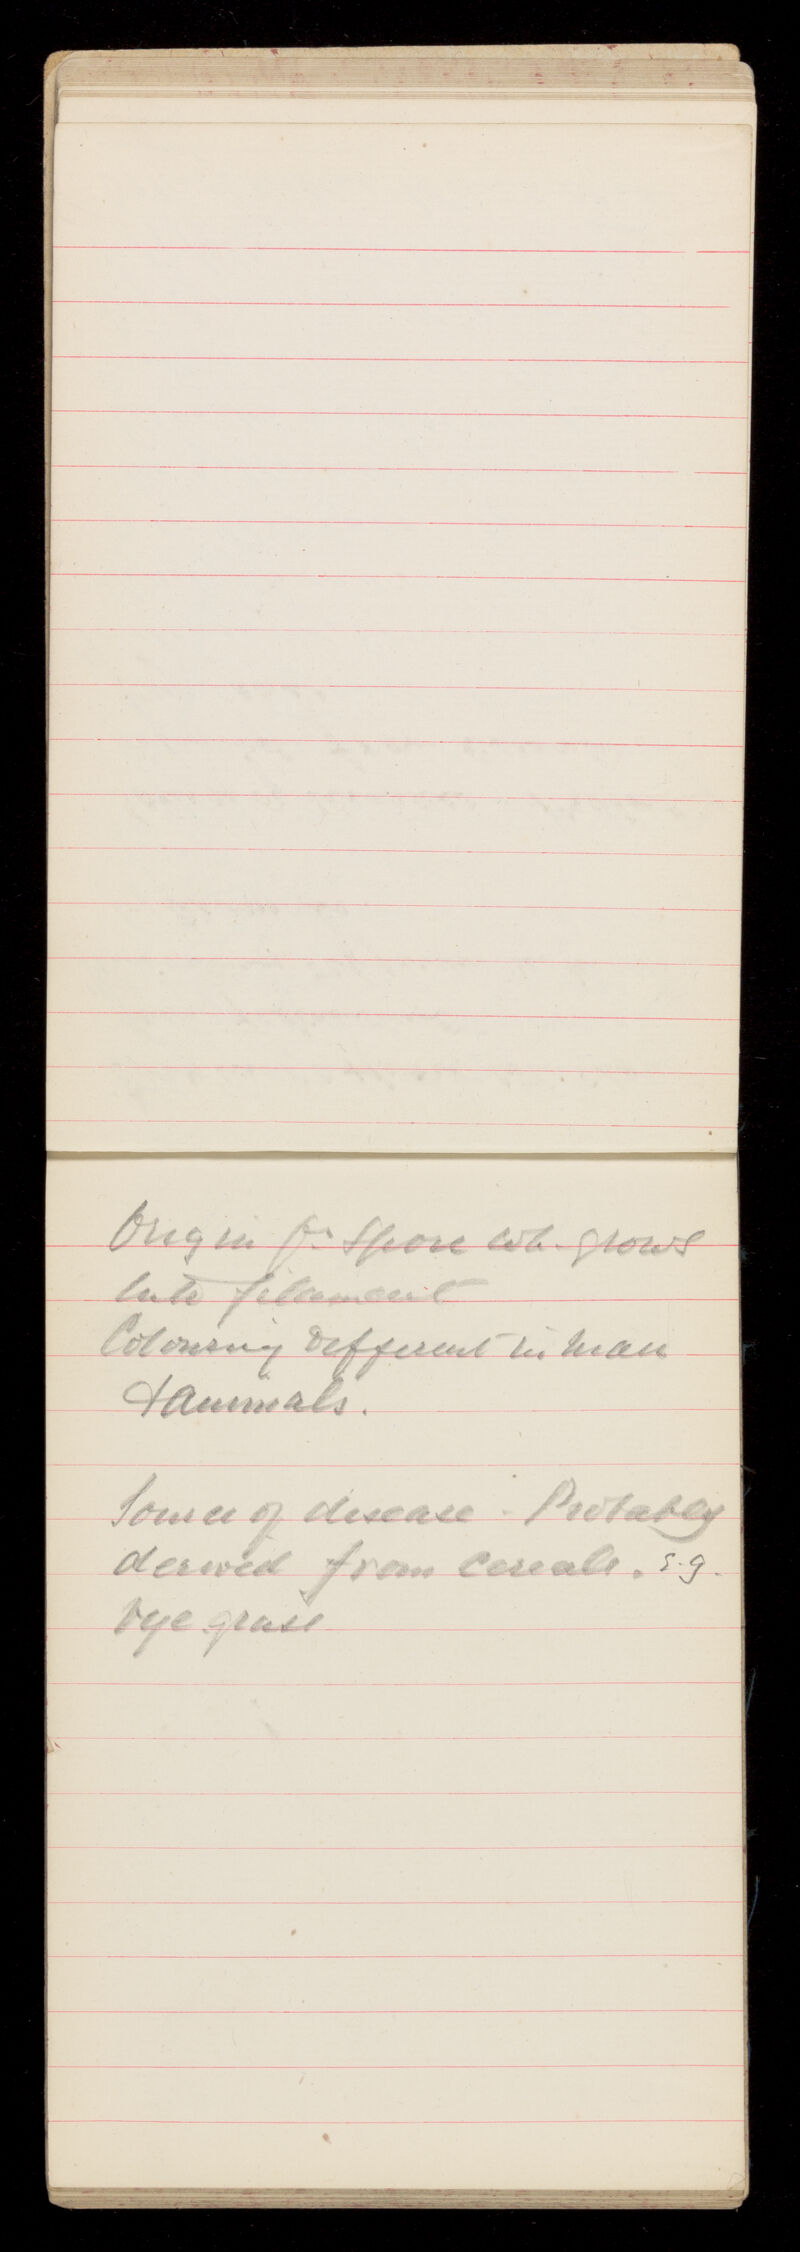 Origin fr. Spore wh. grows
into filament
Colouring different in man
& animals.
Source of disease - Probably
derived from cereals. e.g.
rye grass